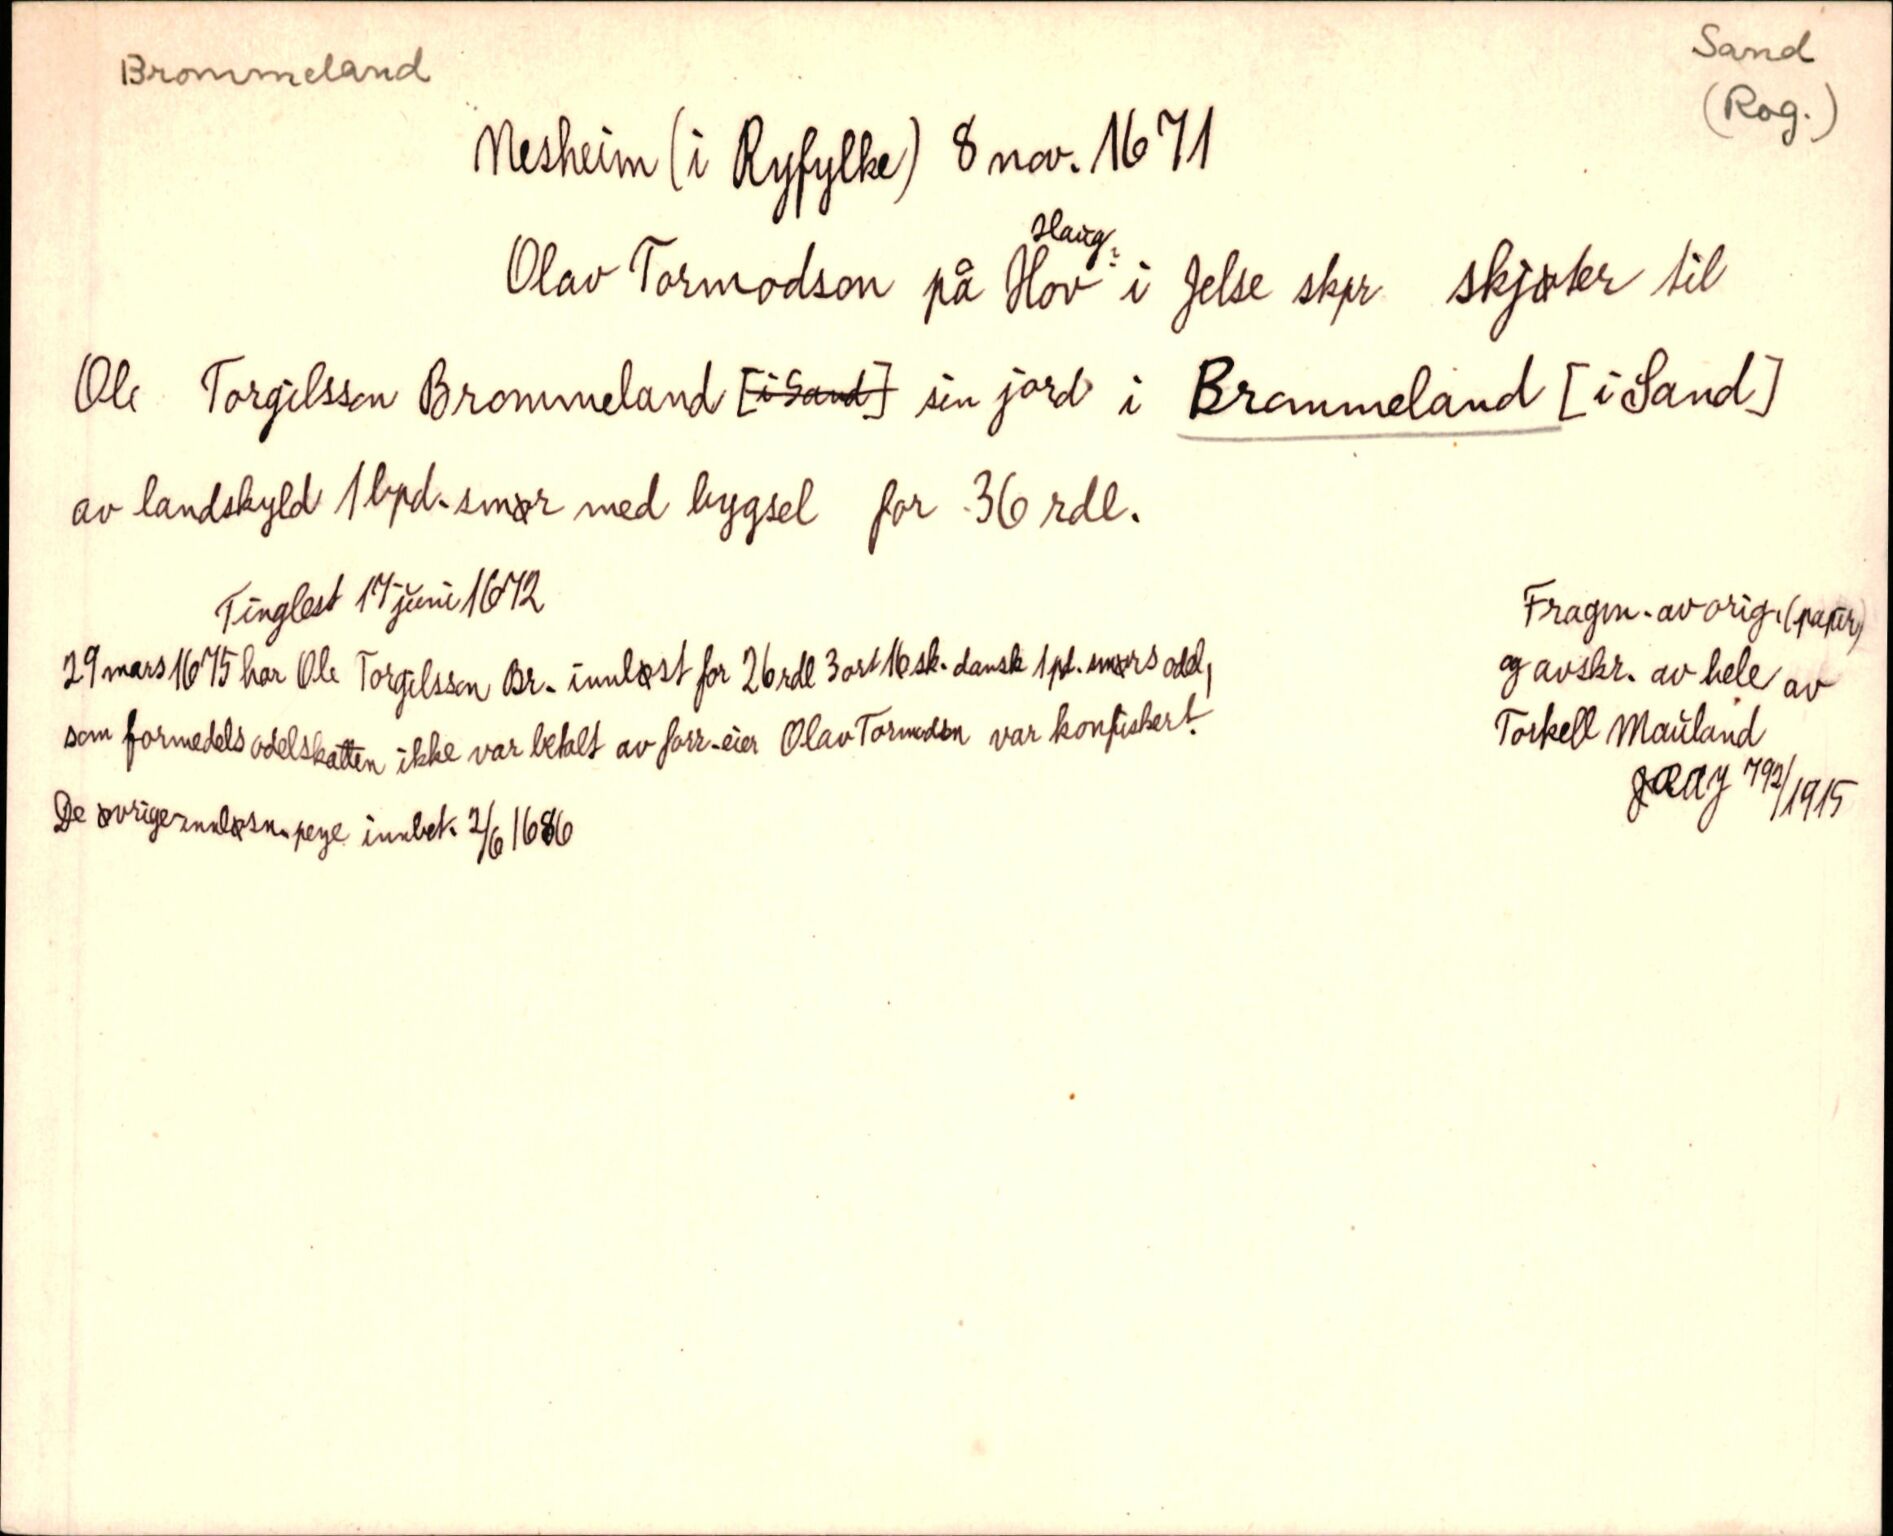 Brommeland
Sand
(Rog.)
Nesheim (i Ryfylke) 8 nov. 1671
Haug?
Olav Tormodson på Hov i Jelse skpr skjøter til
Ole Torgilsson Brommeland [i Sand] sin jord i Brommeland [i Sand]
av landskyld 1 bpd. smør med bygsel for 36 rdl.
Tinglest 17 juni 1672
29 mars 1675 har Ole Torgilsson Br. innløst for 26 rdl 3 ort 16 sk. dansk 1 pd. smørs odel,
som formedels odelskatten ikke var betalt av forr. eier Olav Tormodson var konfiskert.
De øvrige innløsn. penge innbet. 2/6 1686
Fragm. av orig. (papir)
og avskr. av hele av
Torkell Mauland
792/1915